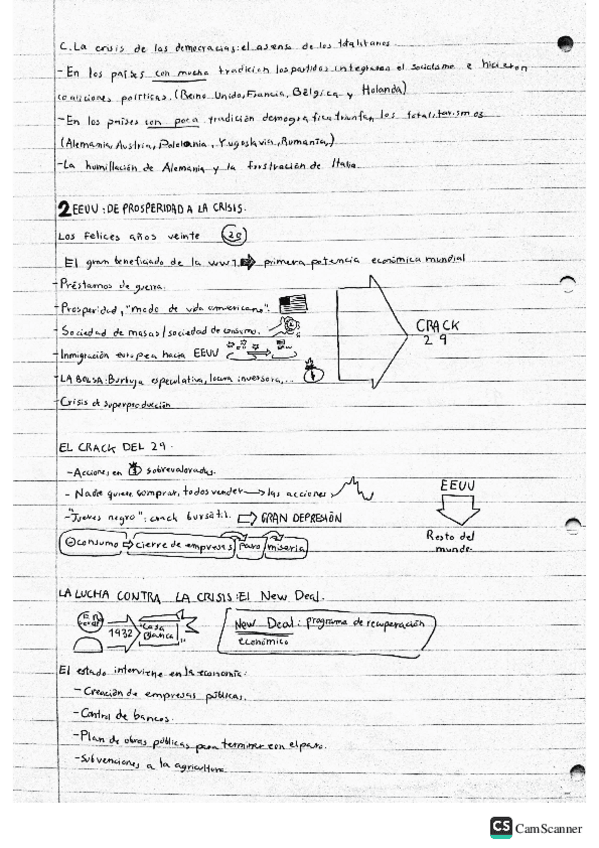 C. La crisis de las democracias: el ascenso de los totalitarios
- En los países con mucha tradición los partidos integraron el socialismo e hicieron
coaliciones políticas. (Reino Unido, Francia, Bélgica y Holanda)
- En los países con poca tradición demografica triunfan los totalitarismos
(Alemania, Austria, Polonia, Yugoslavia, Rumanía,)
- La humillación de Alemania y la frustración de Italia
2 EEUU: DE PROSPERIDAD A LA CRISIS.
Los felices años veinte 20
El gran beneficiado de la WW1 primera potencia económica mundial
- Préstamos de guerra.
- Prosperidad, "modo de vida americano".
- Sociedad de masas/sociedad de consumo.
- Inmigración europea hacia EEUU
- LA BOLSA: Burbuja especulativa, locura inversora,...
- Crisis de superproducción
CRACK
29
EL CRACK DEL 29.
- Acciones en sobrevaloradas.
- Nadie quiere comprar, todos vender → las acciones
- "Jueves negro": crack bursátil. ⇨ GRAN DEPRESIÓN
consumo ⇨ cierre de empresas paro miseria
EEUU
Resto del
mundo.
LA LUCHA CONTRA LA CRISIS: El New Deal.
1932 "Casa
Blanca"
New Deal: programa de recuperación
económico
El estado interviene en la economía:
- Creación de empresas públicas.
- Control de bancos.
- Plan de obras públicas para terminar con el paro.
- Subvenciones a la agricultura
CS CamScanner